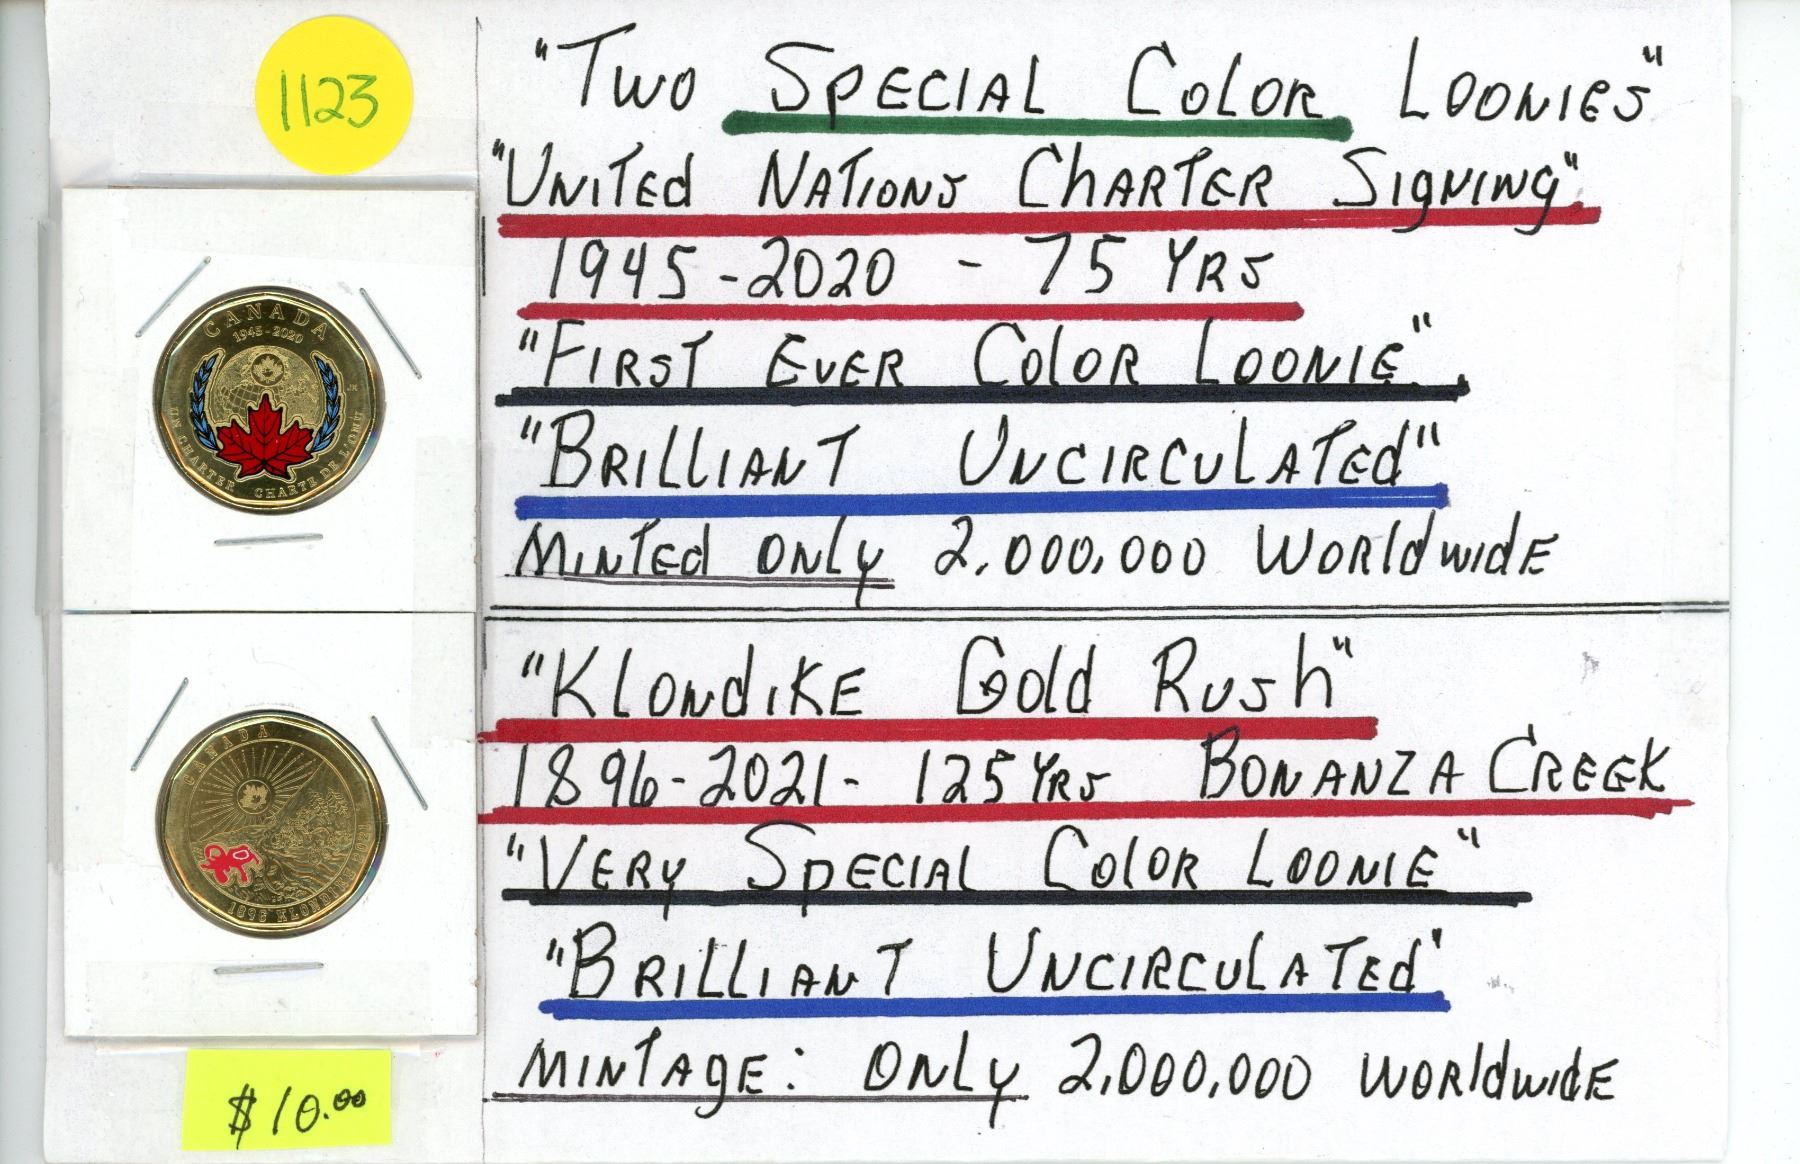 1123
"Two Special Color Loonies"
"United Nations Charter Signing"
1945-2020 - 75 Yrs
"First Ever Color Loonie"
"Brilliant Uncirculated"
Minted only 2,000,000 Worldwide
CANADA
1945-2020
JM
UN CHARTER CHARTE DE L'ONU
"Klondike Gold Rush"
1896-2021- 125 Yrs Bonanza Creek
"Very Special Color Loonie"
"Brilliant Uncirculated"
Mintage: Only 2,000,000 Worldwide
CANADA
1896 KLONDIKE
$10.00